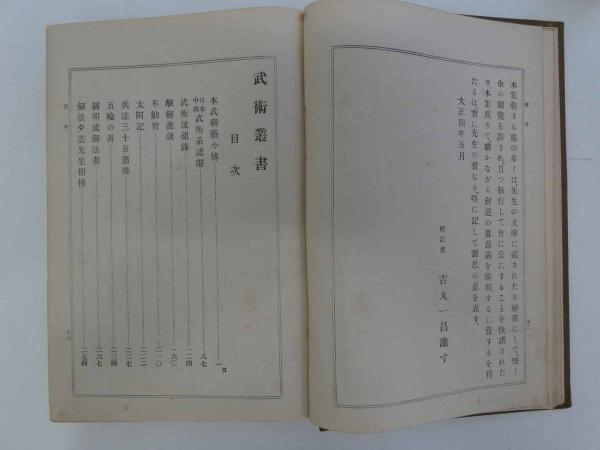 本集載する處の多くは、先生の文庫に藏されたる祕書にして、快く
余の閲覽を許され、且つ版行して世に公にすることを快諾された
り。本集成りて、聊かながら劍道の眞意義を闡明するに資するを得
たるは、實に先生の賚なり。特に記して謝恩の意を表す。
大正四年五月
校訂者 吉丸一昌識す
武術叢書
目次
本武朝藝小傳 一頁
日本中興武術系譜略 八七
武術流祖錄 一二四
擊劍叢談 一六〇
不動智 二一〇
太阿記 二二二
兵法三十五箇條 二二七
五輪の書 二三四
圓明流劍法書 二六七
劍法夕雲先生相傳 二七四